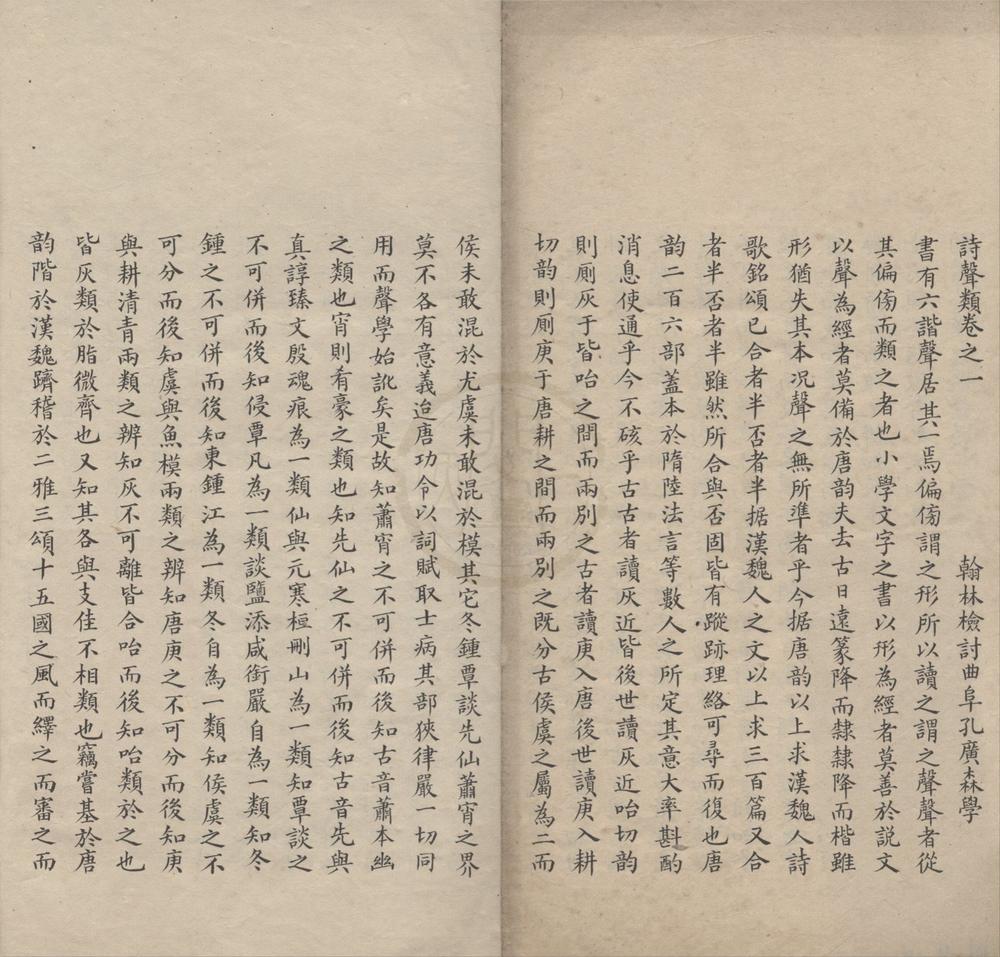 詩聲類卷之一
翰林檢討曲阜孔廣森學
書有六諧聲居其一焉偏傍謂之形所以讀之謂之聲聲者從
其偏傍而類之者也小學文字之書以形為經者莫善於説文
以聲為經者莫備於唐韵夫去古日遠篆降而隸隸降而楷雖
形猶失其本况聲之無所準者乎今据唐韵以上求漢魏人詩
歌銘頌已合者半否者半据漢魏人之文以上求三百篇又合
者半否者半雖然所合與否固皆有蹤跡理絡可尋而復也唐
韵二百六部蓋本於隋陸法言等數人之所定其意大率斟酌
消息使通乎今不硋乎古古者讀灰近皆後世讀灰近咍切韵
則厠灰于皆咍之間而兩別之古者讀庚入唐後世讀庚入耕
切韵則厠庚于唐耕之間而兩別之既分古侯虞之屬為二而
侯未敢混於尤虞未敢混於模其它冬鍾覃談先仙蕭宵之界
莫不各有意義迨唐功令以詞賦取士病其部狹律嚴一切同
用而聲學始訛矣是故知蕭宵之不可併而後知古音蕭本幽
之類也宵則肴豪之類也知先仙之不可併而後知古音先與
真諄臻文殷魂痕為一類仙與元寒桓刪山為一類知覃談之
不可併而後知侵覃凡為一類談鹽添咸銜嚴自為一類知冬
鍾之不可併而後知東鍾江為一類冬自為一類知侯虞之不
可分而後知虞與魚模兩類之辨知唐庚之不可分而後知庚
與耕清青兩類之辨知灰不可離皆合咍而後知咍類於之也
皆灰類於脂微齊也又知其各與支佳不相類也竊嘗基於唐
韵階於漢魏躋稽於二雅三頌十五國之風而繹之而審之而